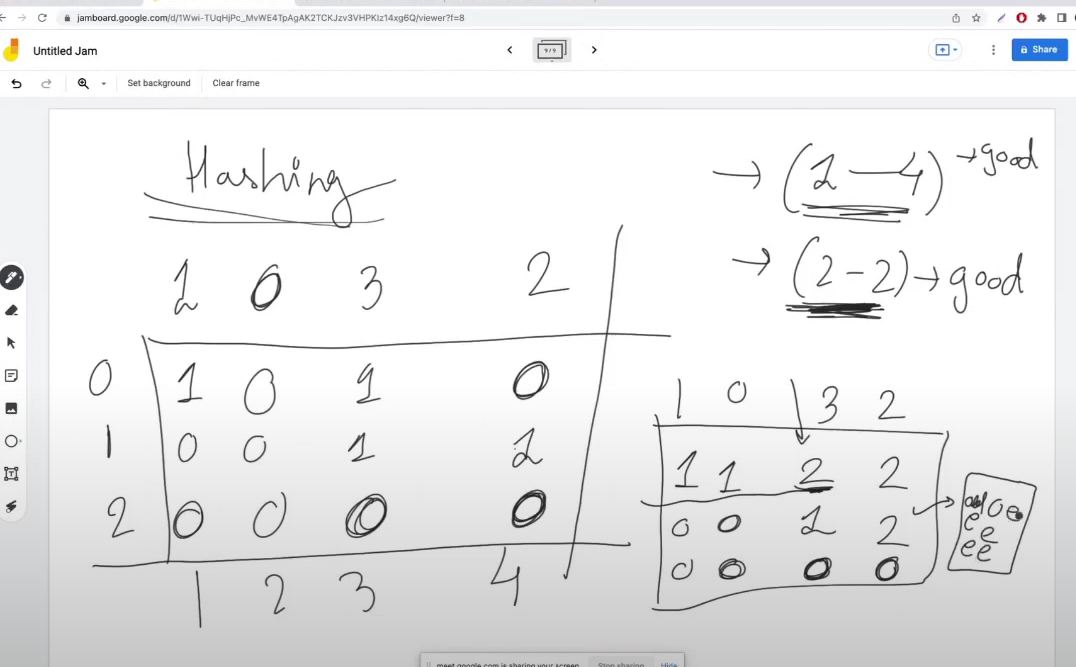 jamboard.google.com/d/1Wwi-TUqHjPc_MvWE4TpAgAK2TCKJzv3VHPKIz14xg6Q/viewer?f=8
Untitled Jam
9/9
Share
Set background Clear frame
Hashing
→ (1 — 4) → good
→ (2 - 2) → good
1 0 3 2
0 1 0 1 0
1 0 0 1 1
2 0 0 0 0
1 2 3 4
1 0 3 2
1 1 2 2
0 0 1 2
0 0 0 0
meet.google.com is sharing your screen. Stop sharing Hide